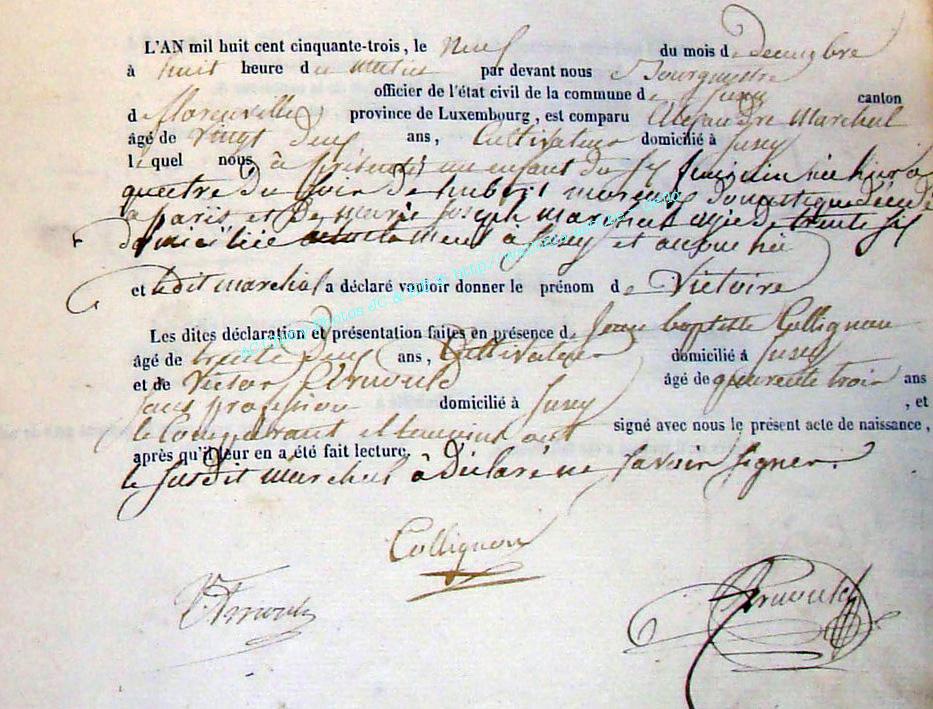 L'AN mil huit cent cinquante-trois, le neuf du mois de decembre
à huit heure du matin par devant nous Bourguestre
officier de l'état civil de la commune de Jusey canton
de florenville province de Luxembourg, est comparu Alexandre Marchal
âgé de vingt deux ans, Cultivateur domicilié à Jusey
lequel nous à présenté un enfant du feminin née hier a
quatre du soir de hubert domestique
a paris et de marie Joseph marchal agée de trente six
domiciliée à Jusey et
et ledit marchal a déclaré vouloir donner le prénom de Victoire
Les dites déclaration et présentation faites en présence de Jean baptiste Collignon
âgé de trente deux ans, Cultivateur domicilié à Jusey
et de Victor Arnould âgé de quarente trois ans
sans profession domicilié à Jusey , et
le comparant et temoins ont signé avec nous le présent acte de naissance,
après qu'il leur en a été fait lecture.
le susdit marchal à déclaré ne savoir signer.
Collignon
VArnould
Arnould